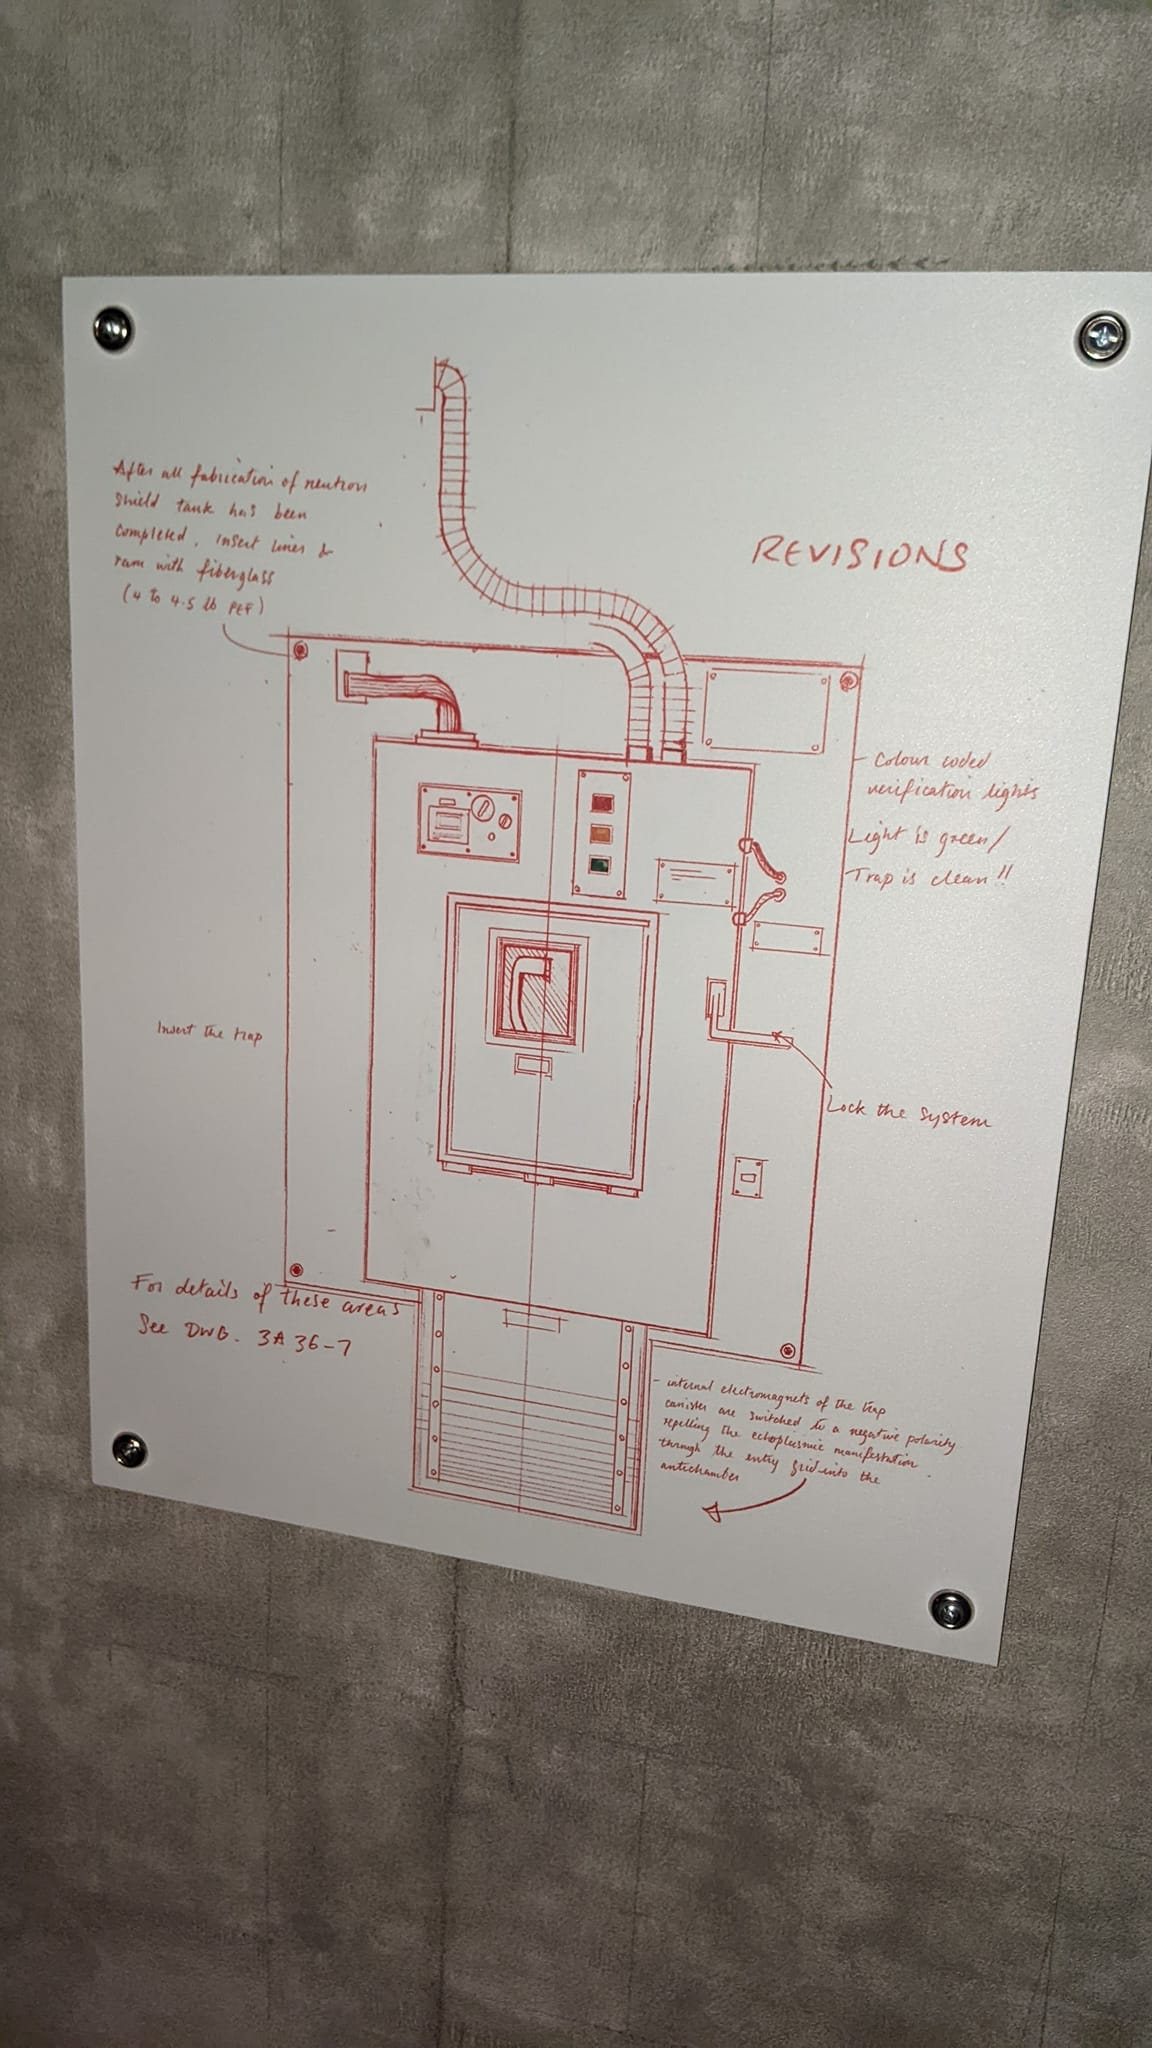 REVISIONS
After all fabrication of neutron
shield tank has been
completed, insert liner &
ram with fiberglass
(4 to 4.5 lb PEF)
- Colour coded
verification lights
Light is green/
Trap is clean!!
Insert the trap
Lock the system
For details of these areas
See DWG. 3A36-7
- internal electromagnets of the trap
canister are switched to a negative polarity
repelling the ectoplasmic manifestation
through the entry grid into the
antichamber